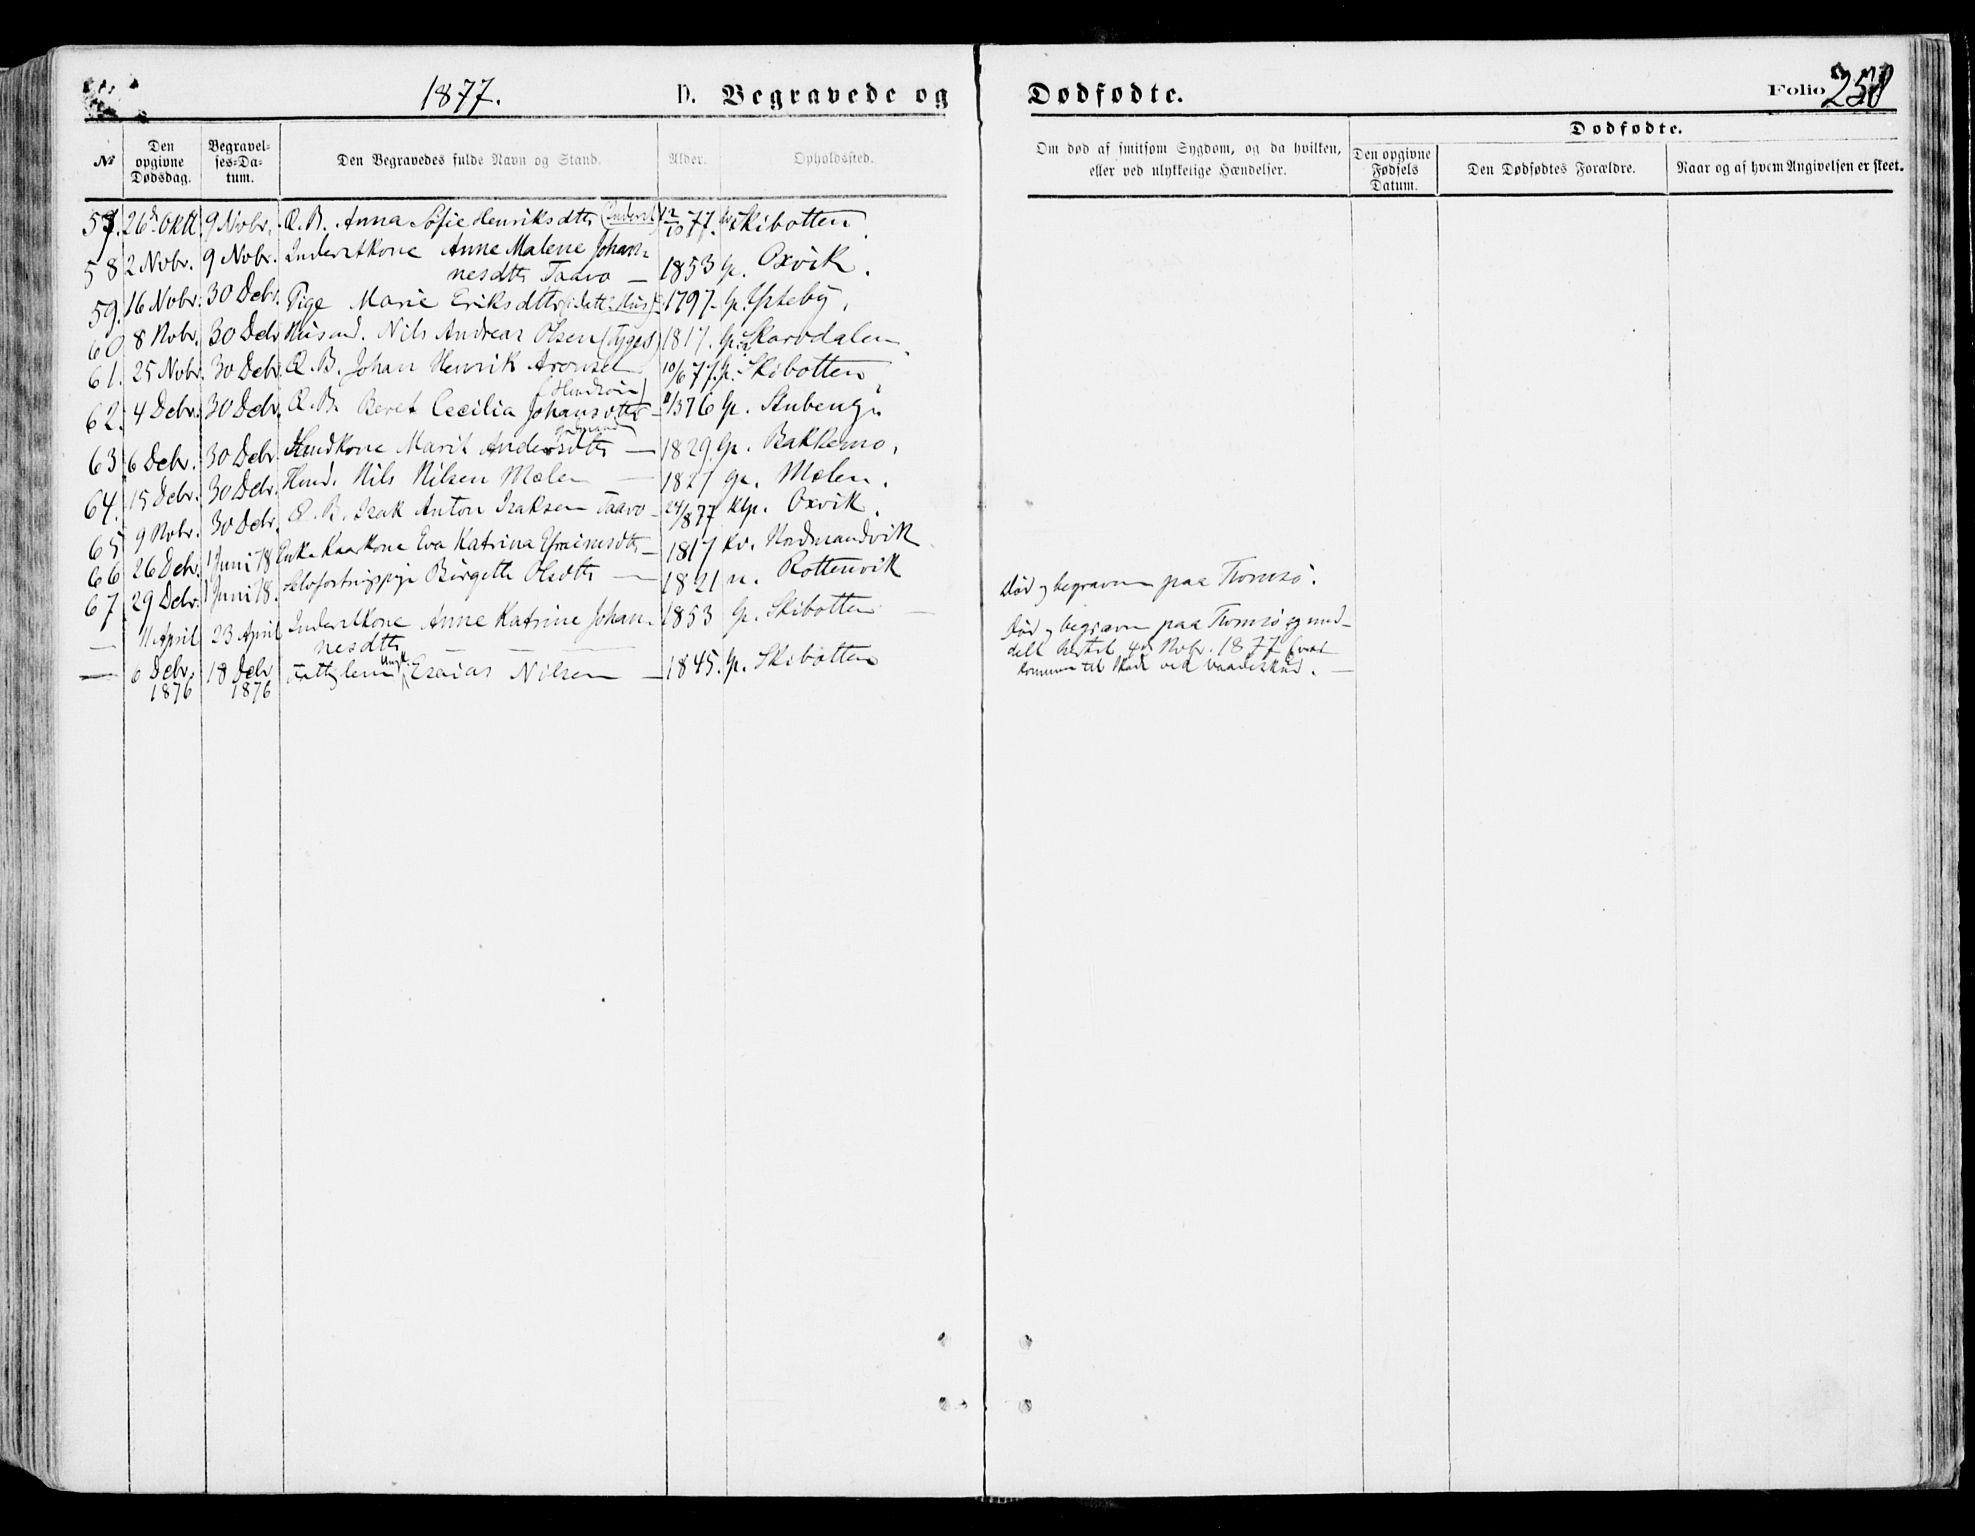 1877. D. Begravede og Dødfødte. Folio 258
Dødfødte.
№
Den opgivne Dødsdag.
Begravel-ses-Da-tum.
Den Begravedes fulde Navn og Stand.
Alder.
Opholdssted.
Om død af smitsom Sygdom, og da hvilken,
eller ved ulykkelige Hændelser.
Den opgivne Fødsels Datum.
Den Dødfødtes Forældre.
Naar og af hvem Angivelsen er skeet.
57. 26 Oktb. 9 Novbr. Æ. B. Anna Sofie Henriksdtr 12/10 77. Skibotten.
58 2 Novbr. 9 Nobr. Inderstkone Anne Malene Johan-
nesdtr Taavo — 1853 Gp. Oxvik.
59. 16 Nvbr. 30 Debr. Pige Marie Eriksdtr 1797 Gp.
60 8 Nobr. 30 Debr Husmd. Nils Andreas Olsen 1817. Gp. Skarvdalen
61. 25 Nobr. 30 Debr Æ. B. Johan Henrik Aronsen 10/6 77. Gp. Skibotten
62. 4 Debr. 30 Debr. Æ. B. Beret Cecilia Johansdtr — 1/3 76 Gp. Stubeng.
63 6 Debr. 30 Debr. Husmdkone Marit Andersdtr — 1829. Gp. Bakkemo.
64. 15 Debr. 30 Debr. Husmd. Nils Nilsen Mælen — 1827 Gp. Mælen.
65 9 Nobr. 30 Debr. Æ. B. Isak Anton Isaksen Taavo 24/8 77 Kp. Oxvik.
66 26 Debr. 1 Juni 78 Enke Kaarkone Eva Katrina Efraimsdtr — 1817 Kv. Nordmandvik
67 29 Debr. 1 Juni 78. Selvforsørgpige Birgethe Olsdtr — 1821 n. Rottenvik
Død og begraven paa Tromsø.
— 11 April 23 April Inderstkone Anne Katrine Johan- 1853 Gp. Skibotten —
nesdtr
Død og begraven paa Tromsø og med-
delt hertil 4de Nobr. 1877
kommen til Skade ved Vaadeskud. —
— 6 Debr. 18 Debr. Esaias Nilsen — 1845. Gp. Skibotten
1876 1876